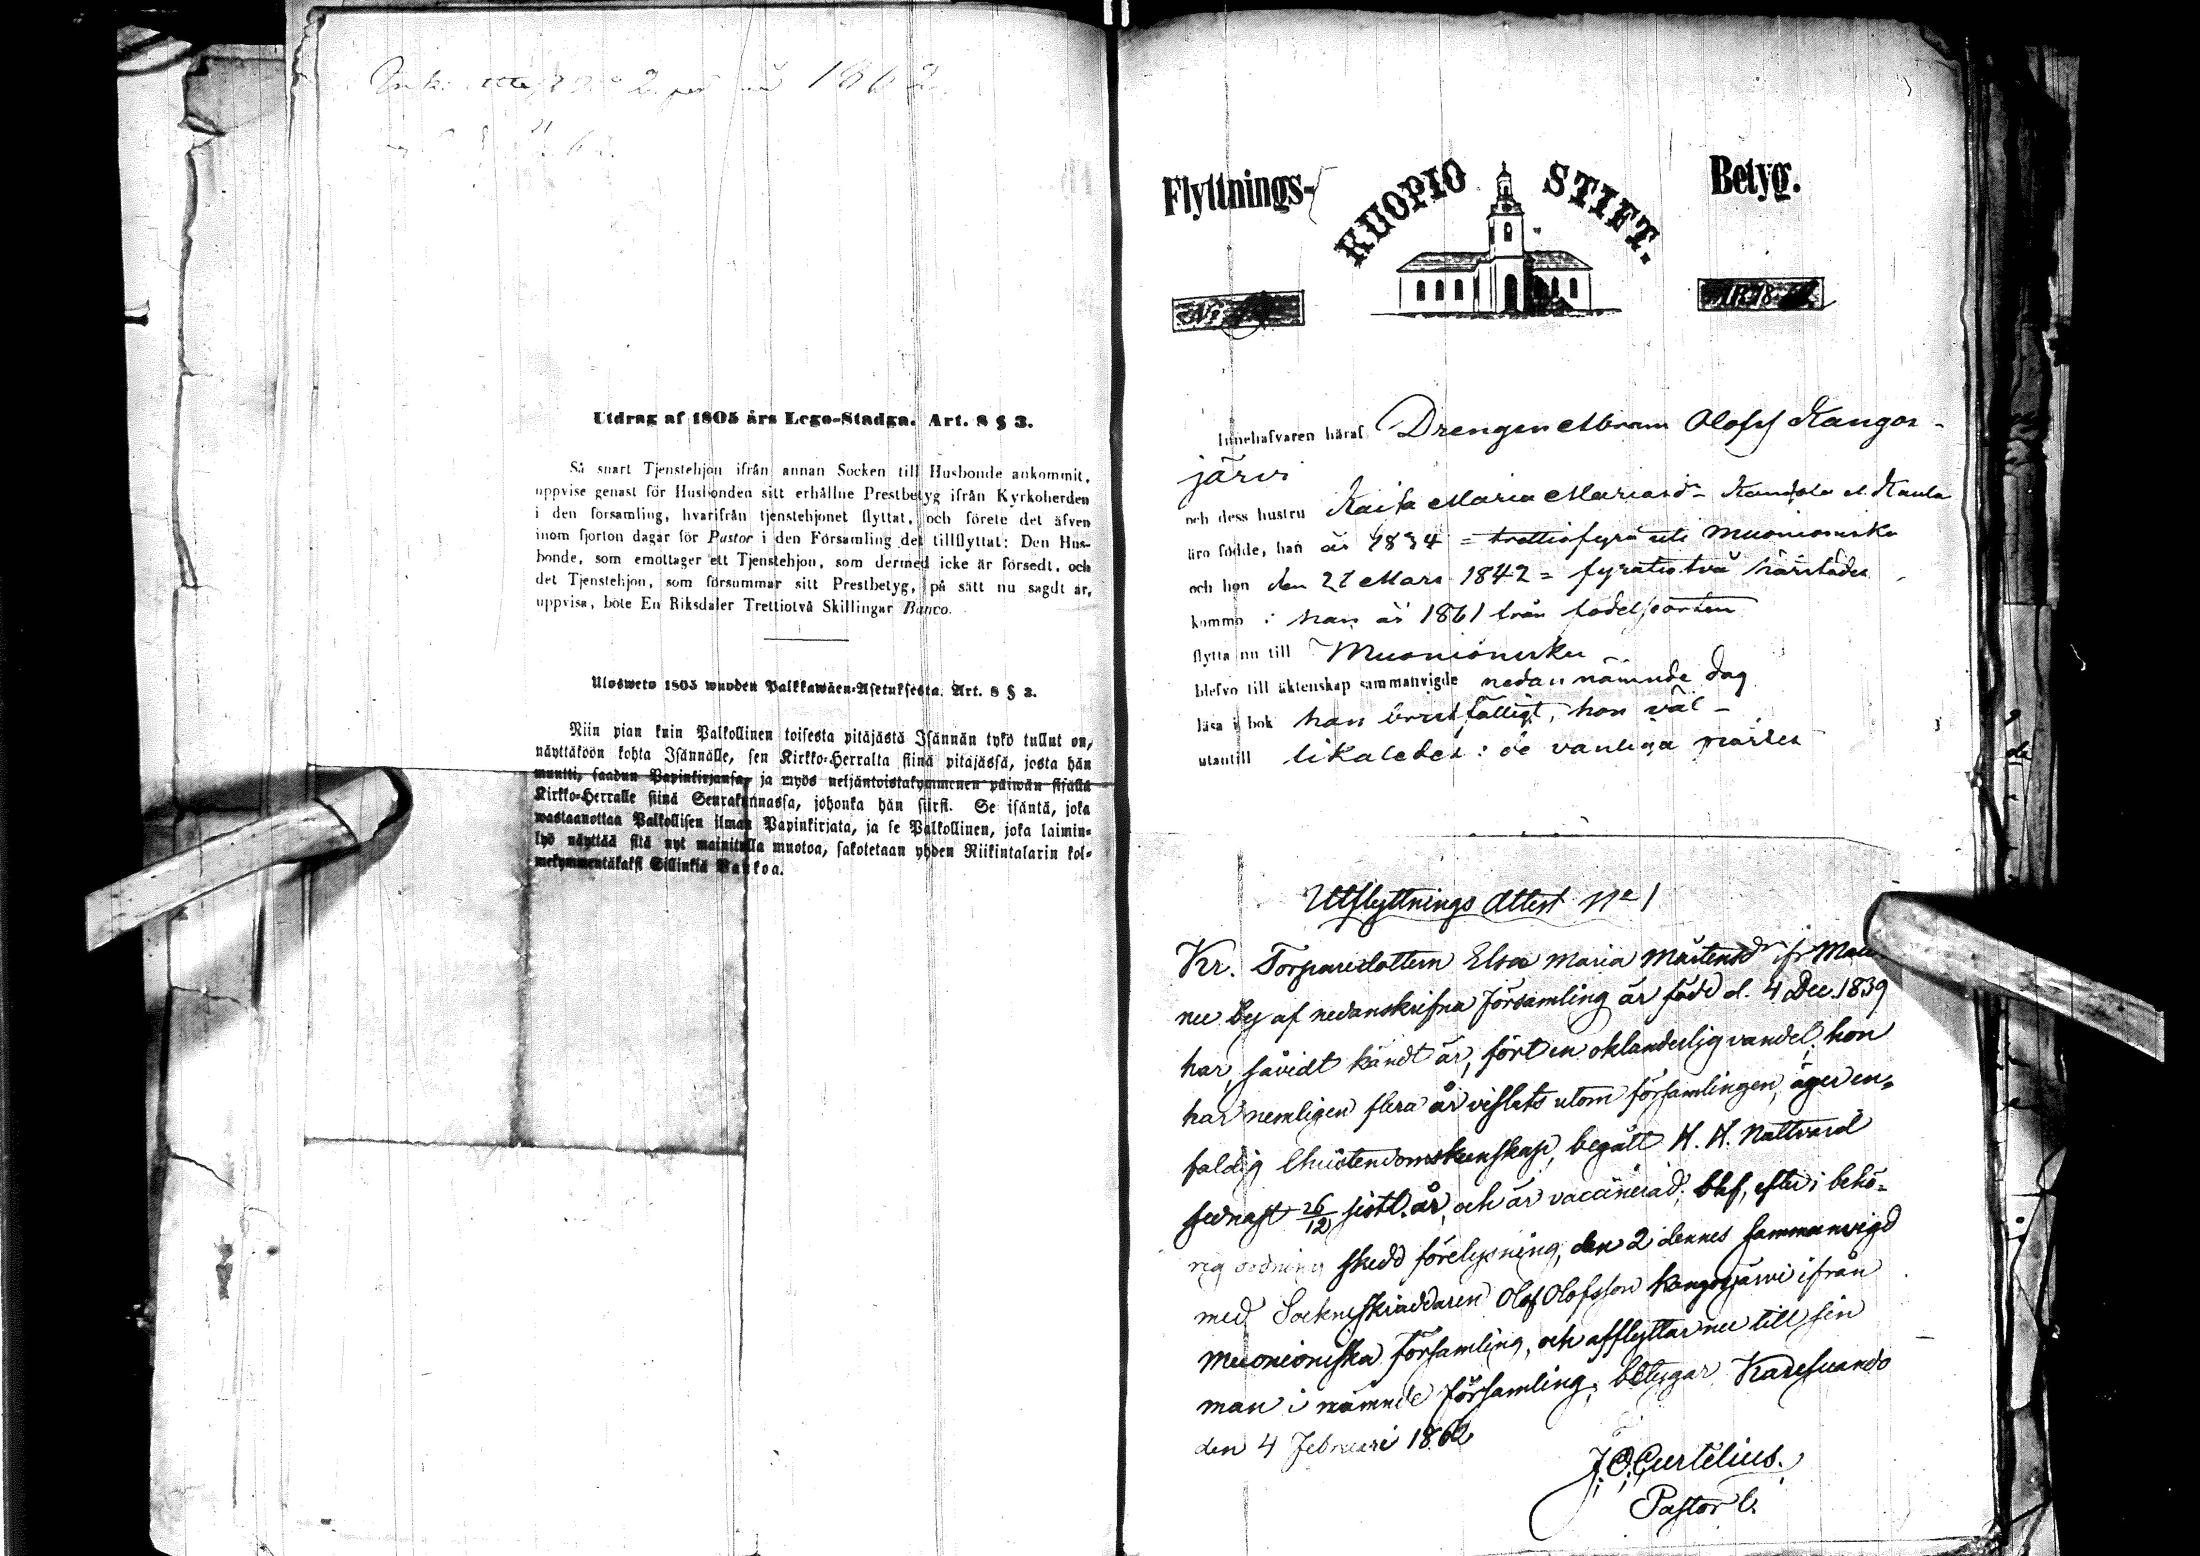 1862
Utdrag af 1805 års Lego-Stadga. Art. 8 § 3.
Så snart Tjenstehjon ifrån annan Socken till Husbonde ankommit,
uppvise genast för Husbonden sitt erhållne Prestbetyg ifrån Kyrkoherden
i den församling, hvarifrån tjenstehjonet flyttat, och förete det äfven
inom fjorton dagar för Pastor i den Församling det tillflyttat: Den Hus-
bonde, som emottager ett Tjenstehjon, som dermed icke är försedt, och
det Tjenstehjon, som försummar sitt Prestbetyg, på sätt nu sagdt är,
uppvisa, böte En Riksdaler Trettiotvå Skillingar Banco.
Ulosweto 1805 wuoden Palkkawäen-Asetuksesta. Art. 8 § 3.
Niin pian kuin Palkollinen toisesta pitäjästä Isännän tykö tullut on,
näyttäköön kohta Isännälle, sen Kirkko-Herralta siinä pitäjässä, josta hän
muutti, saadun Papinkirjansa, ja myös neljäntoistakymmenen päiwän sisällä
Kirkko-Herralle siinä Seurakunnassa, johonka hän siirsi. Se isäntä, joka
wastaanottaa Palkollisen ilman Papinkirjata, ja se Palkollinen, joka laimin-
lyö näyttää sitä nyt mainitulla muotoa, sakotetaan yhden Riikintalarin kol-
mekymmentäkaksi Sillinkiä Bankoa.
Flyttnings- KUOPIO STIFT. Betyg.
N:o ÅR 18
Innehafvaren häraf Drengen Abram Olofss Kangos-
järvi
och dess hustru Kaisa Maria Mariasdr
äro födde, han år 1834 = trettiofyra uti Muonioniska
och hon den 22 Mars 1842 = fyratiotvå härstädes
kommo : han år 1861 från födelseorten
flytta nu till Muonioniska
blefvo till äktenskap sammanvigde nedannämnde dag
läsa i bok han bristfälligt, hon väl -
utantill likaledes: de vanliga
Utflyttnings Attest No 1
Kr. Torparedottern Elsa Maria Mårtensdr ifr
nu by af nedanskrifna församling är född d. 4 Dec. 1839
har, såvidt kändt är, fört en oklanderlig vandel, hon
har nemligen flera år vistats utom församlingen, äger en-
faldig Christendomskunskap, begått H. H. Nattvard
sednast 26/12 sistl. år, och är vaccinerad; blef, efter i behö-
rig ordning skedd förelysning, den 2 dennes sammanvigd
med Sockneskräddaren Olof Olofsson Kangosjärwi ifrån
Muonioniska församling, och afflyttar nu till sin
man i nämnde församling; betygar Karesuando
den 4 Februari 1862
J. O. Curtelius.
Pastor